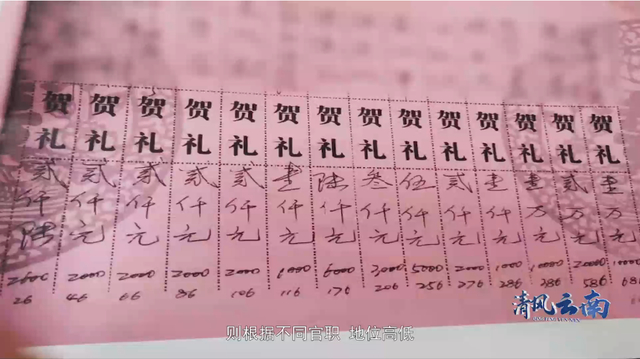 贺 贺 贺 贺 贺 贺 贺 贺 贺 贺 贺 贺 贺 贺
礼 礼 礼 礼 礼 礼 礼 礼 礼 礼 礼 礼 礼 礼
贰 贰 贰 贰 贰 壹 陆 叁 伍 贰 壹 壹 贰 壹
仟 仟 仟 仟 仟 仟 仟 仟 仟 仟 仟 万 万 万
陆 元 元 元 元 元 元 元 元 元 元 元 元 元
2600 2000 2000 2000 2000 1000 6000 3000 5000 2000 1000 10000 20000
26 46 66 86 106 116 176 206 256 276 286 386 586
清风云南
则根据不同官职 地位高低